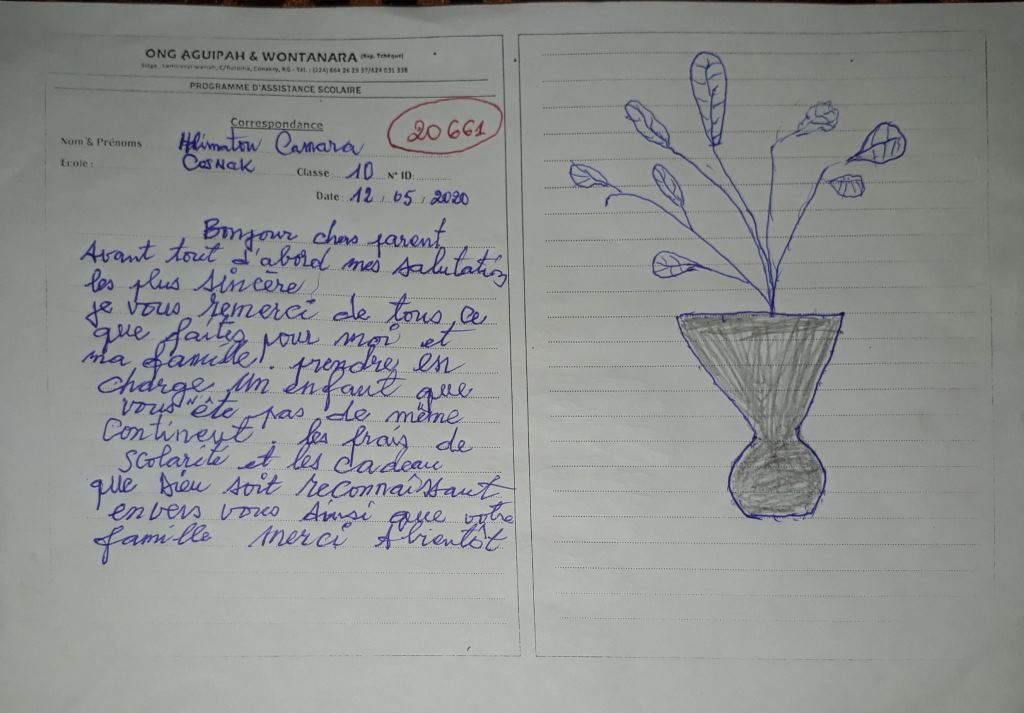 ONG AGUIPAH & WONTANARA (Rép. Tchèque)
C/Ratoma, Conakry, RG - Tél.: (224) 664 26 25 37/624 031 338
PROGRAMME D'ASSISTANCE SCOLAIRE
Correspondance
20661
Nom & Prénoms Alimatou Camara
École: CosNak Classe 10 N° ID:
Date: 12, 05, 2020
Bonjour chers parent
Avant tout d'abord mes salutation
les plus sincère
je vous remerci de tous ce
que faites pour moi et
ma famille. prendre en
charge un enfant que
vous ête pas de même
Continent. les frais de
scolarité et les cadeau
que Dieu soit reconnaissant
envers vous Ainsi que votre
famille Merci Abientôt